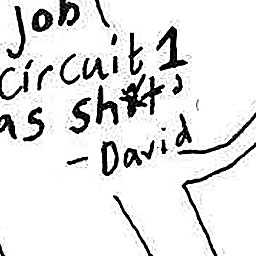 Job
circuit 1
as sh*t'
- David